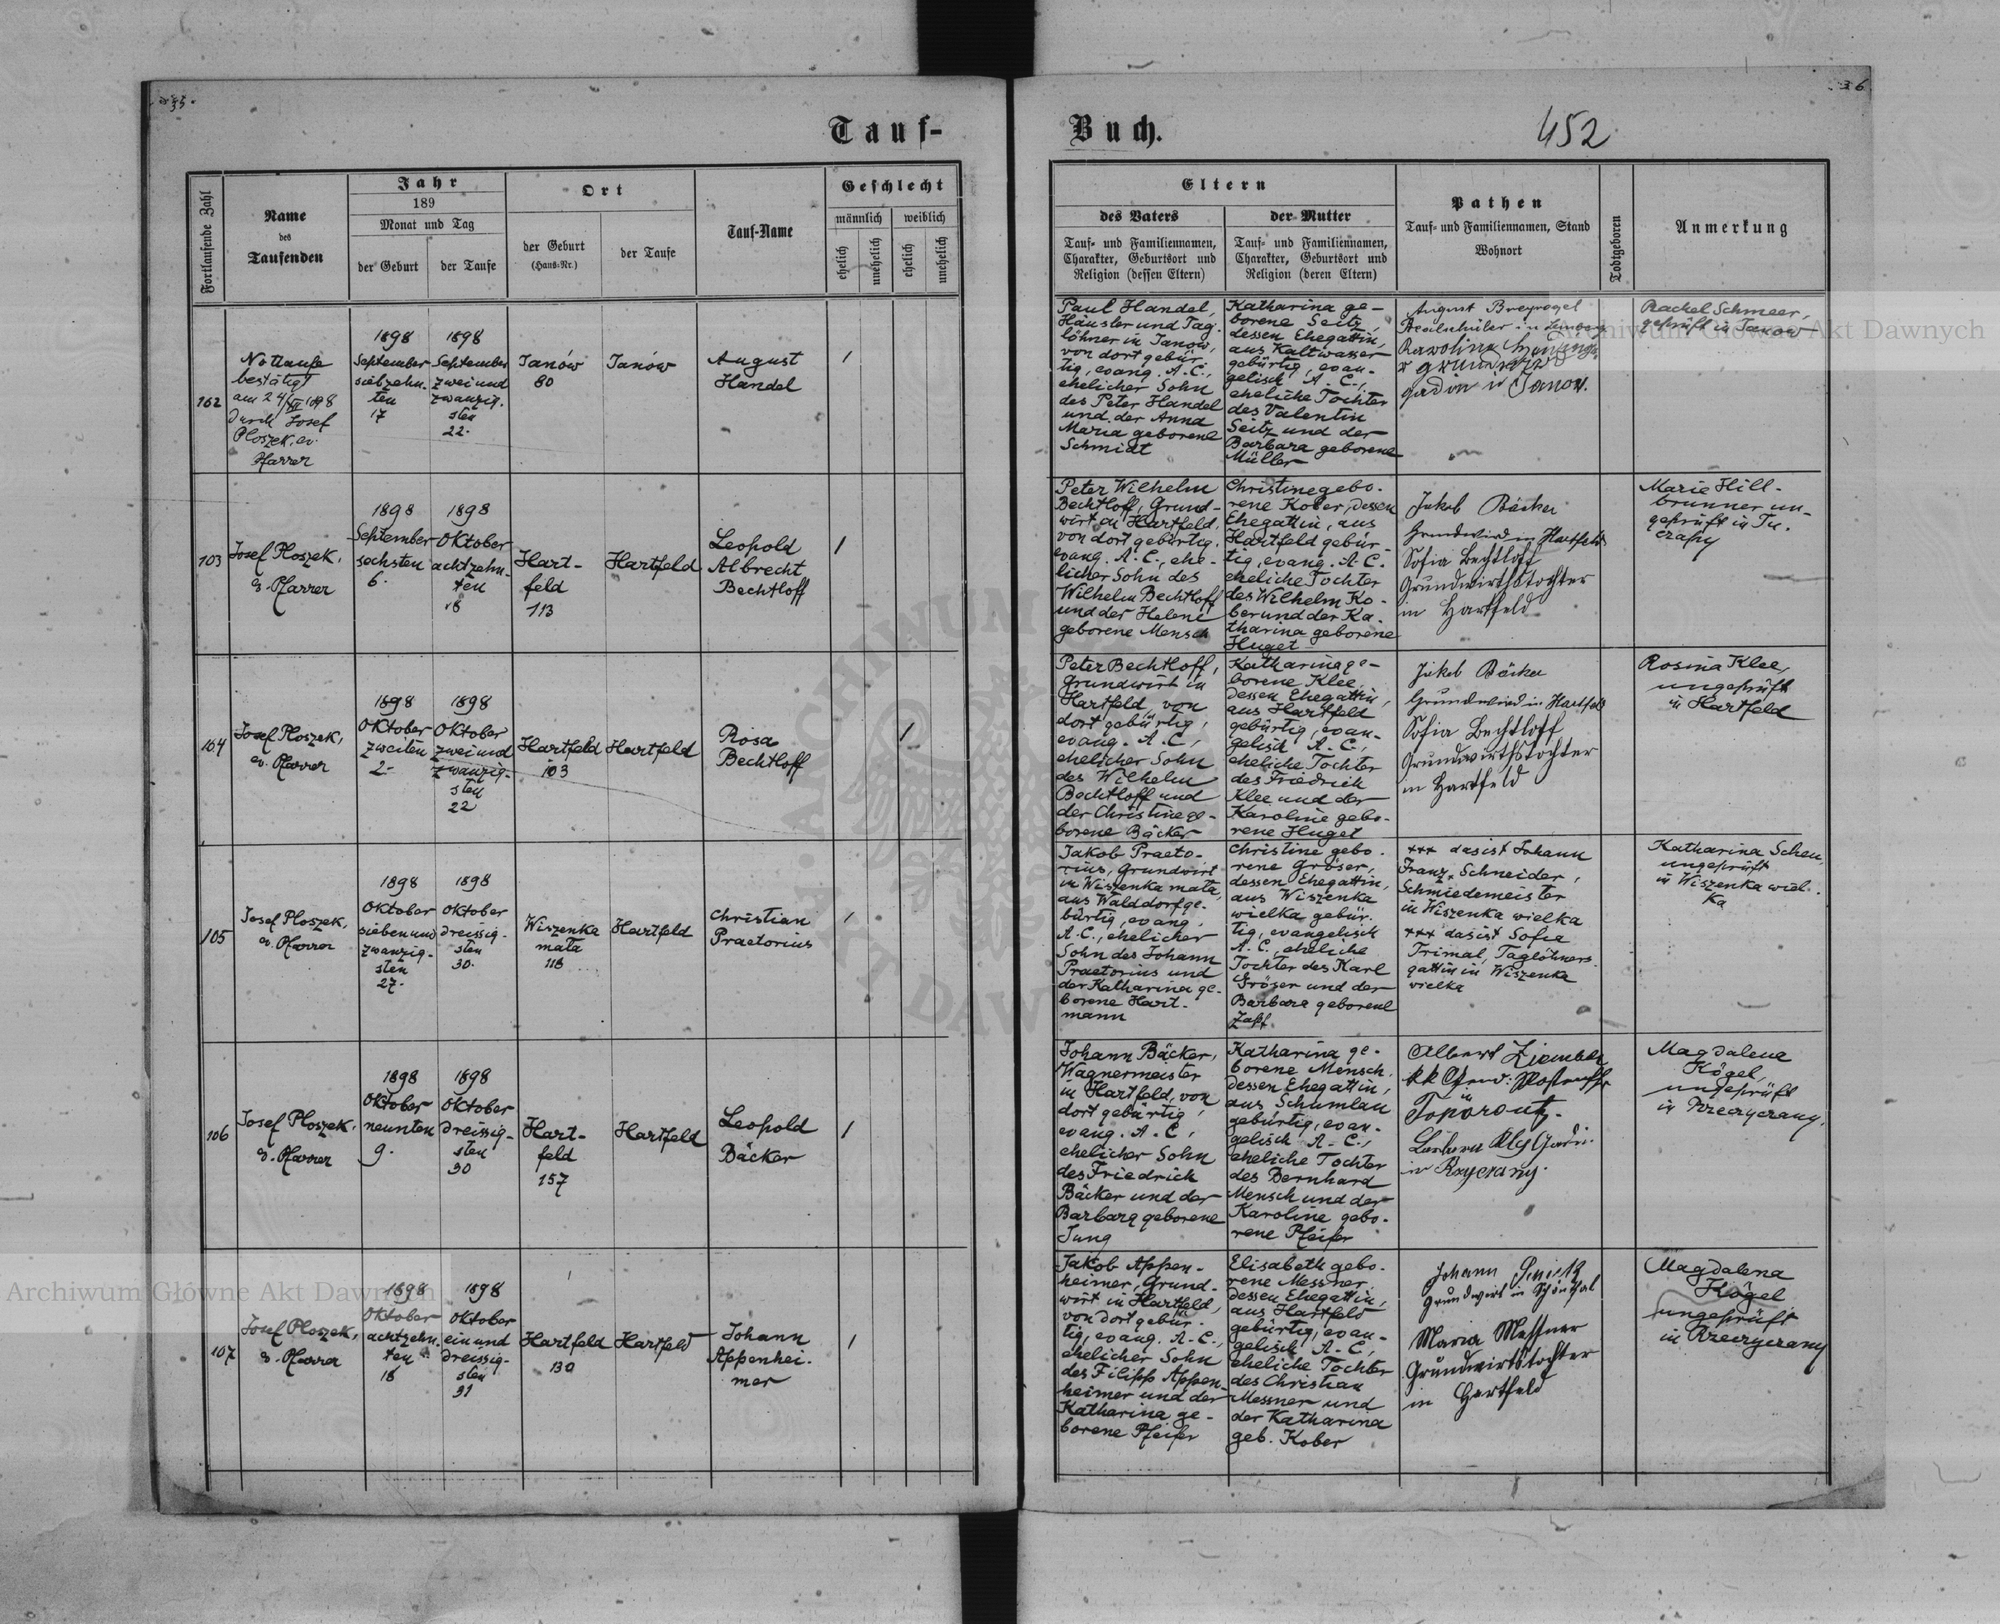 35.
36
Tauf-
Buch.
452
Fortlaufende Zahl
Name
des
Taufenden
Jahr
189
Monat und Tag
der Geburt
der Taufe
Ort
der Geburt
(Haus-Nr.)
der Taufe
Tauf-Name
Geschlecht
männlich
weiblich
ehelich
unehelich
ehelich
unehelich
Eltern
des Vaters
Tauf- und Familiennamen,
Charakter, Geburtsort und
Religion (dessen Eltern)
der Mutter
Tauf- und Familiennamen,
Charakter, Geburtsort und
Religion (deren Eltern)
Pathen
Tauf- und Familiennamen, Stand
Wohnort
Todtgeboren
Anmerkung
102
Nottaufe
bestätigt
am 24/ 1898
durch Josef
Ploszek, ev.
Pfarrer
1898
September
siebzehn-
ten
17
1898
September
zweiund
zwanzig-
sten
22.
Janów
80
Janów
August
Handel
1
Paul Handel,
Häusler und Tag-
löhner in Janów,
von dort gebür-
tig, evang. A.C.,
ehelicher Sohn
des Peter Handel
und der Anna
Maria geborene
Schmidt
Katharina ge-
borene Seitz,
dessen Ehegattin,
aus Kaltwasser
gebürtig, evan-
gelisch A.C.,
eheliche Tochter
des Valentin
Seitz und der
Barbara geborene
Müller
August Breyvogel
Realschüler in Lemberg
Karolina
in Janow.
Rachel Schmeer,
geprüft in Janow
103
Josef Ploszek,
ev. Pfarrer
1898
September
sechsten
6.
1898
Oktober
achtzehn-
ten
18
Hart-
feld
113
Hartfeld
Leopold
Albrecht
Bechtloff
1
Peter Wilhelm
Bechtloff, Grund-
wirt in Hartfeld,
von dort gebürtig,
evang. A.C., ehe-
licher Sohn des
Wilhelm Bechtloff
und der Helene
geborene Mensch
Christine gebo-
rene Kober, dessen
Ehegattin, aus
Hartfeld gebür-
tig, evang. A.C.
eheliche Tochter
des Wilhelm Ko-
ber und der Ka-
tharina geborene
Huget
Jakob Bäcker
Grundwird in Hartfeld
Sofia Bechtloff
Grundwirthstochter
in Hartfeld
Marie Hill-
brunner un-
geprüft in Tu-
czapy
104
Josef Ploszek,
ev. Pfarrer
1898
Oktober
zweiten
2.
1898
Oktober
zweiund
zwanzig-
sten
22
Hartfeld
103
Hartfeld
Rosa
Bechtloff
1
Peter Bechtloff,
Grundwirt in
Hartfeld, von
dort gebürtig,
evang. A.C,
ehelicher Sohn
des Wilhelm
Bechtloff und
der Christine ge-
borene Bäcker
Katharina ge-
borene Klee,
dessen Ehegattin,
aus Hartfeld
gebürtig, evan-
gelisch A.C.,
eheliche Tochter
des Friedrich
Klee und der
Karoline gebo-
rene Huget
Jakob Bäcker
Grundwird in Hartfeld
Sofia Bechtloff
Grundwirthstochter
in Hartfeld
Rosina Klee,
ungeprüft
in Hartfeld
105
Josef Ploszek,
ev. Pfarrer
1898
Oktober
siebenund
zwanzig-
sten
27.
1898
Oktober
dreissig-
sten
30.
Wiszenka
mała
118
Hartfeld
Christian
Praetorius
1
Jakob Praeto-
rius, Grundwirt
in Wiszenka mała,
aus Walddorf ge-
bürtig, evang.
A.C., ehelicher
Sohn des Johann
Praetorius und
der Katharina ge-
borene Hart-
mann
Christine gebo-
rene Gröser,
dessen Ehegattin,
aus Wiszenka
wielka gebür-
tig, evangelisch
A.C., eheliche
Tochter des Karl
Gröser und der
Barbara geborene
Zapf
+++ das ist Johann
Franz Schneider,
Schmiedemeister
in Wiszenka wielka
+++ das ist Sofie
Trimal, Taglöhners-
gattin in Wiszenka
wielka
Katharina Scheu,
ungeprüft
in Wiszenka wiel-
ka
106
Josef Ploszek,
ev. Pfarrer
1898
Oktober
neunten
9.
1898
Oktober
dreissig-
sten
30
Hart-
feld
157
Hartfeld
Leopold
Bäcker
1
Johann Bäcker,
Wagnermeister
in Hartfeld, von
dort gebürtig,
evang. A.C,
ehelicher Sohn
des Friedrich
Bäcker und der
Barbara geborene
Jung
Katharina ge-
borene Mensch,
dessen Ehegattin,
aus Schumlau
gebürtig, evan-
gelisch A.C.,
eheliche Tochter
des Bernhard
Mensch und der
Karoline gebo-
rene Pfeifer
Albert
in
Magdalena
Kögel,
ungeprüft
in Rzeczyczany.
107
Josef Ploszek,
ev. Pfarrer
1898
Oktober
achtzehn-
ten
18
1898
Oktober
einund
dreissig-
sten
31
Hartfeld
130
Hartfeld
Johann
Appenhei-
mer
1
Jakob Appen-
heimer, Grund-
wirt in Hartfeld,
von dort gebür-
tig, evang. A.C.,
ehelicher Sohn
des Filipp Appen-
heimer und der
Katharina ge-
borene Pfeifer
Elisabeth gebo-
rene Messner,
dessen Ehegattin,
aus Hartfeld
gebürtig, evan-
gelisch A.C,
eheliche Tochter
des Christian
Messner und
der Katharina
geb. Kober
Johann
Grundwirt in Schönthal
Maria Messner
Grundwirtstochter
in Hartfeld
Magdalena
Kögel
ungeprüft
in Rzeczyczany
Archiwum Główne Akt Dawnych
Archiwum Główne Akt Dawnych